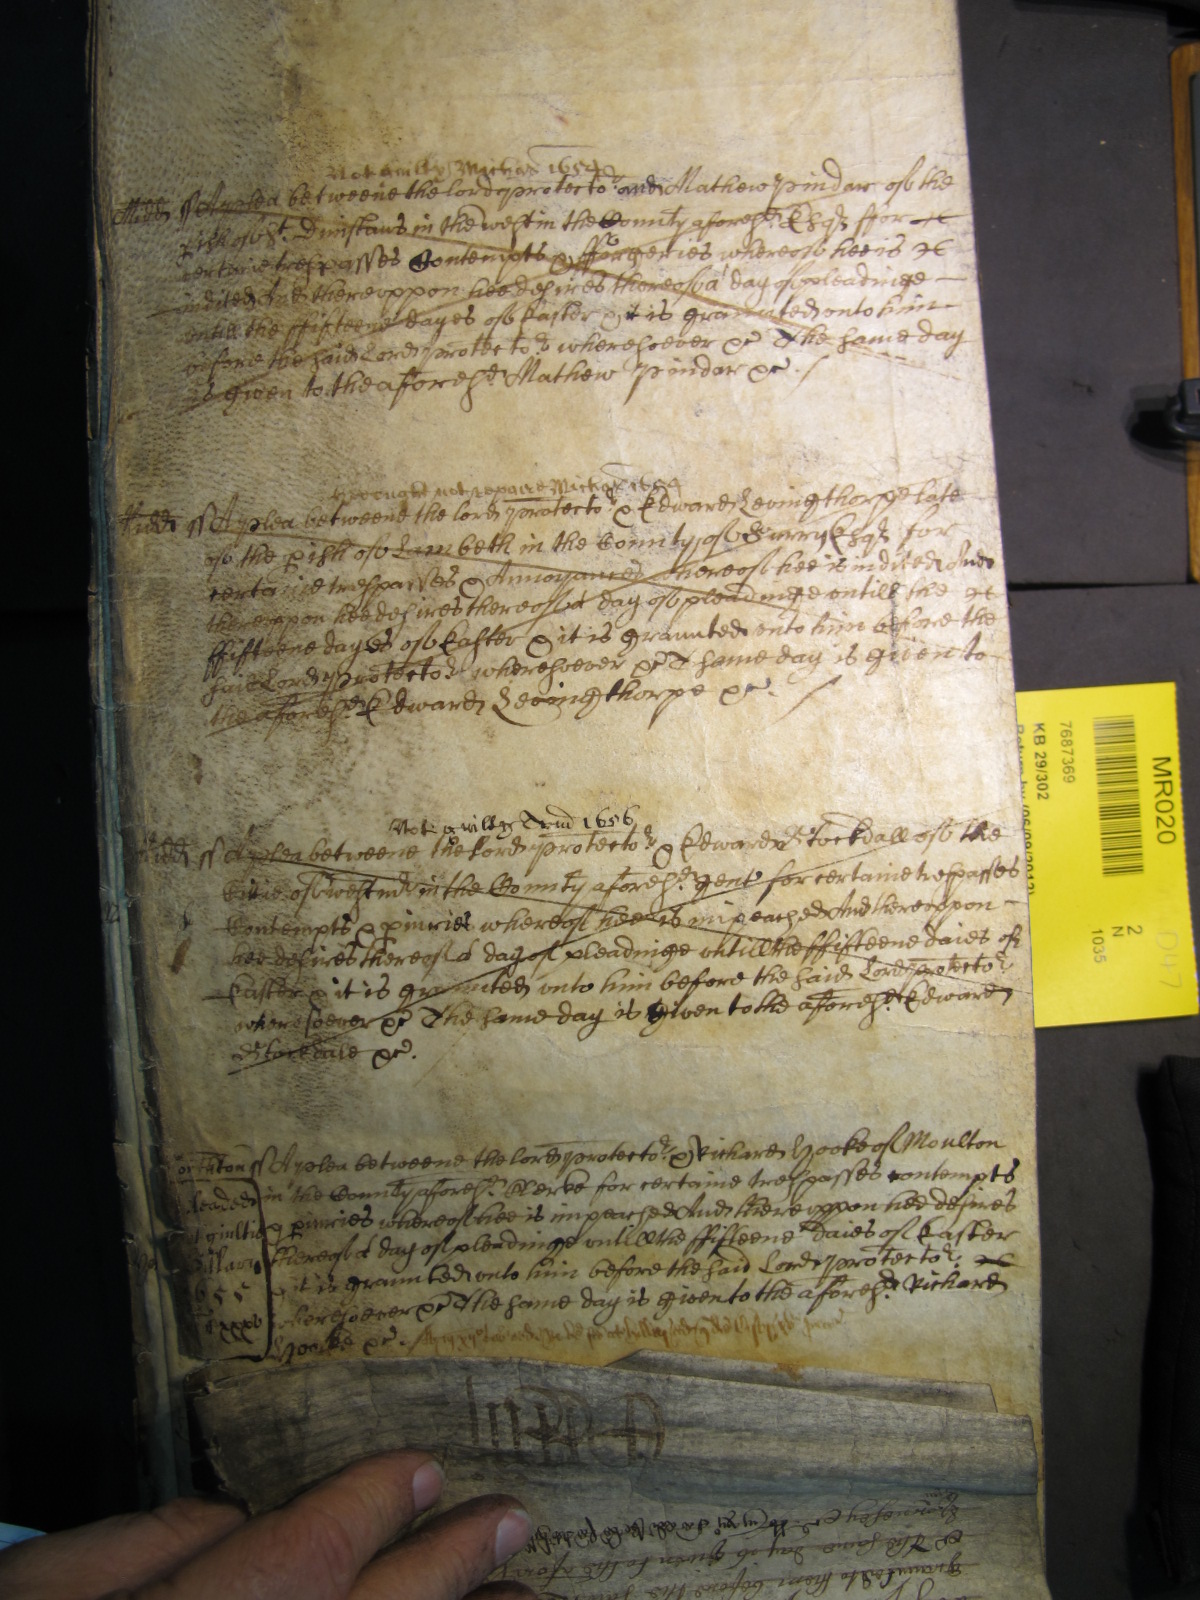 Not guilty Michis 1654
Midd ss A plea betweene the lord protector and Mathew Pindar of the
pish of St. Dunstans in the west in the County aforesd. Esqr ffor
certaine trespasses Contempts & fforgeries whereof hee is
indited And thereuppon hee desires thereof a day of pleadinge
untill the ffifteene dayes of Easter & it is graunted unto him
before the said Lord protector wheresoever &c The same day
is given to the aforesd Mathew Pindar &c.
Brought not repaire Michis 1654
Midd ss A plea betweene the lord protector & Edward Levingthorpe late
of the pish of Lambeth in the County of Surry Esqr for
certaine trespasses & Annoyances whereof hee is indited And
thereupon hee desires thereof a day of pleadinge untill the
ffifteene dayes of Easter & it is graunted unto him before the
said Lord protector wheresoever &c The same day is given to
the aforesd. Edward Levingthorpe &c.
Not guilty Trin 1656
Midd ss A plea betweene the Lord protector & Edward Stockdall of the
Cittie of westmr in the County aforesd. gent for certaine trespasses
Contempts & piuries whereof hee is impeached And thereupon
hee desires thereof a day of pleadinge untill the ffifteene daies of
Easter & it is graunted unto him before the said Lord protector
wheresoever &c The same day is given to the aforesd. Edward
Stockdale &c.
Northton ss A plea betweene the lord protector & Richard Hooke of Moulton
in the County aforesd. Clerke for certaine trespasses contempts
& piuries whereof hee is impeached And thereuppon hee desires
thereof a day of pleadinge untill the ffifteene daies of Easter
& it is graunted unto him before the said Lord protector
wheresoever &c The same day is given to the aforesd Richard
Hooke &c.
pleaded
not guiltie
Hillary
1655
MR020
7687369
KB 29/302
2
N
1035
D47